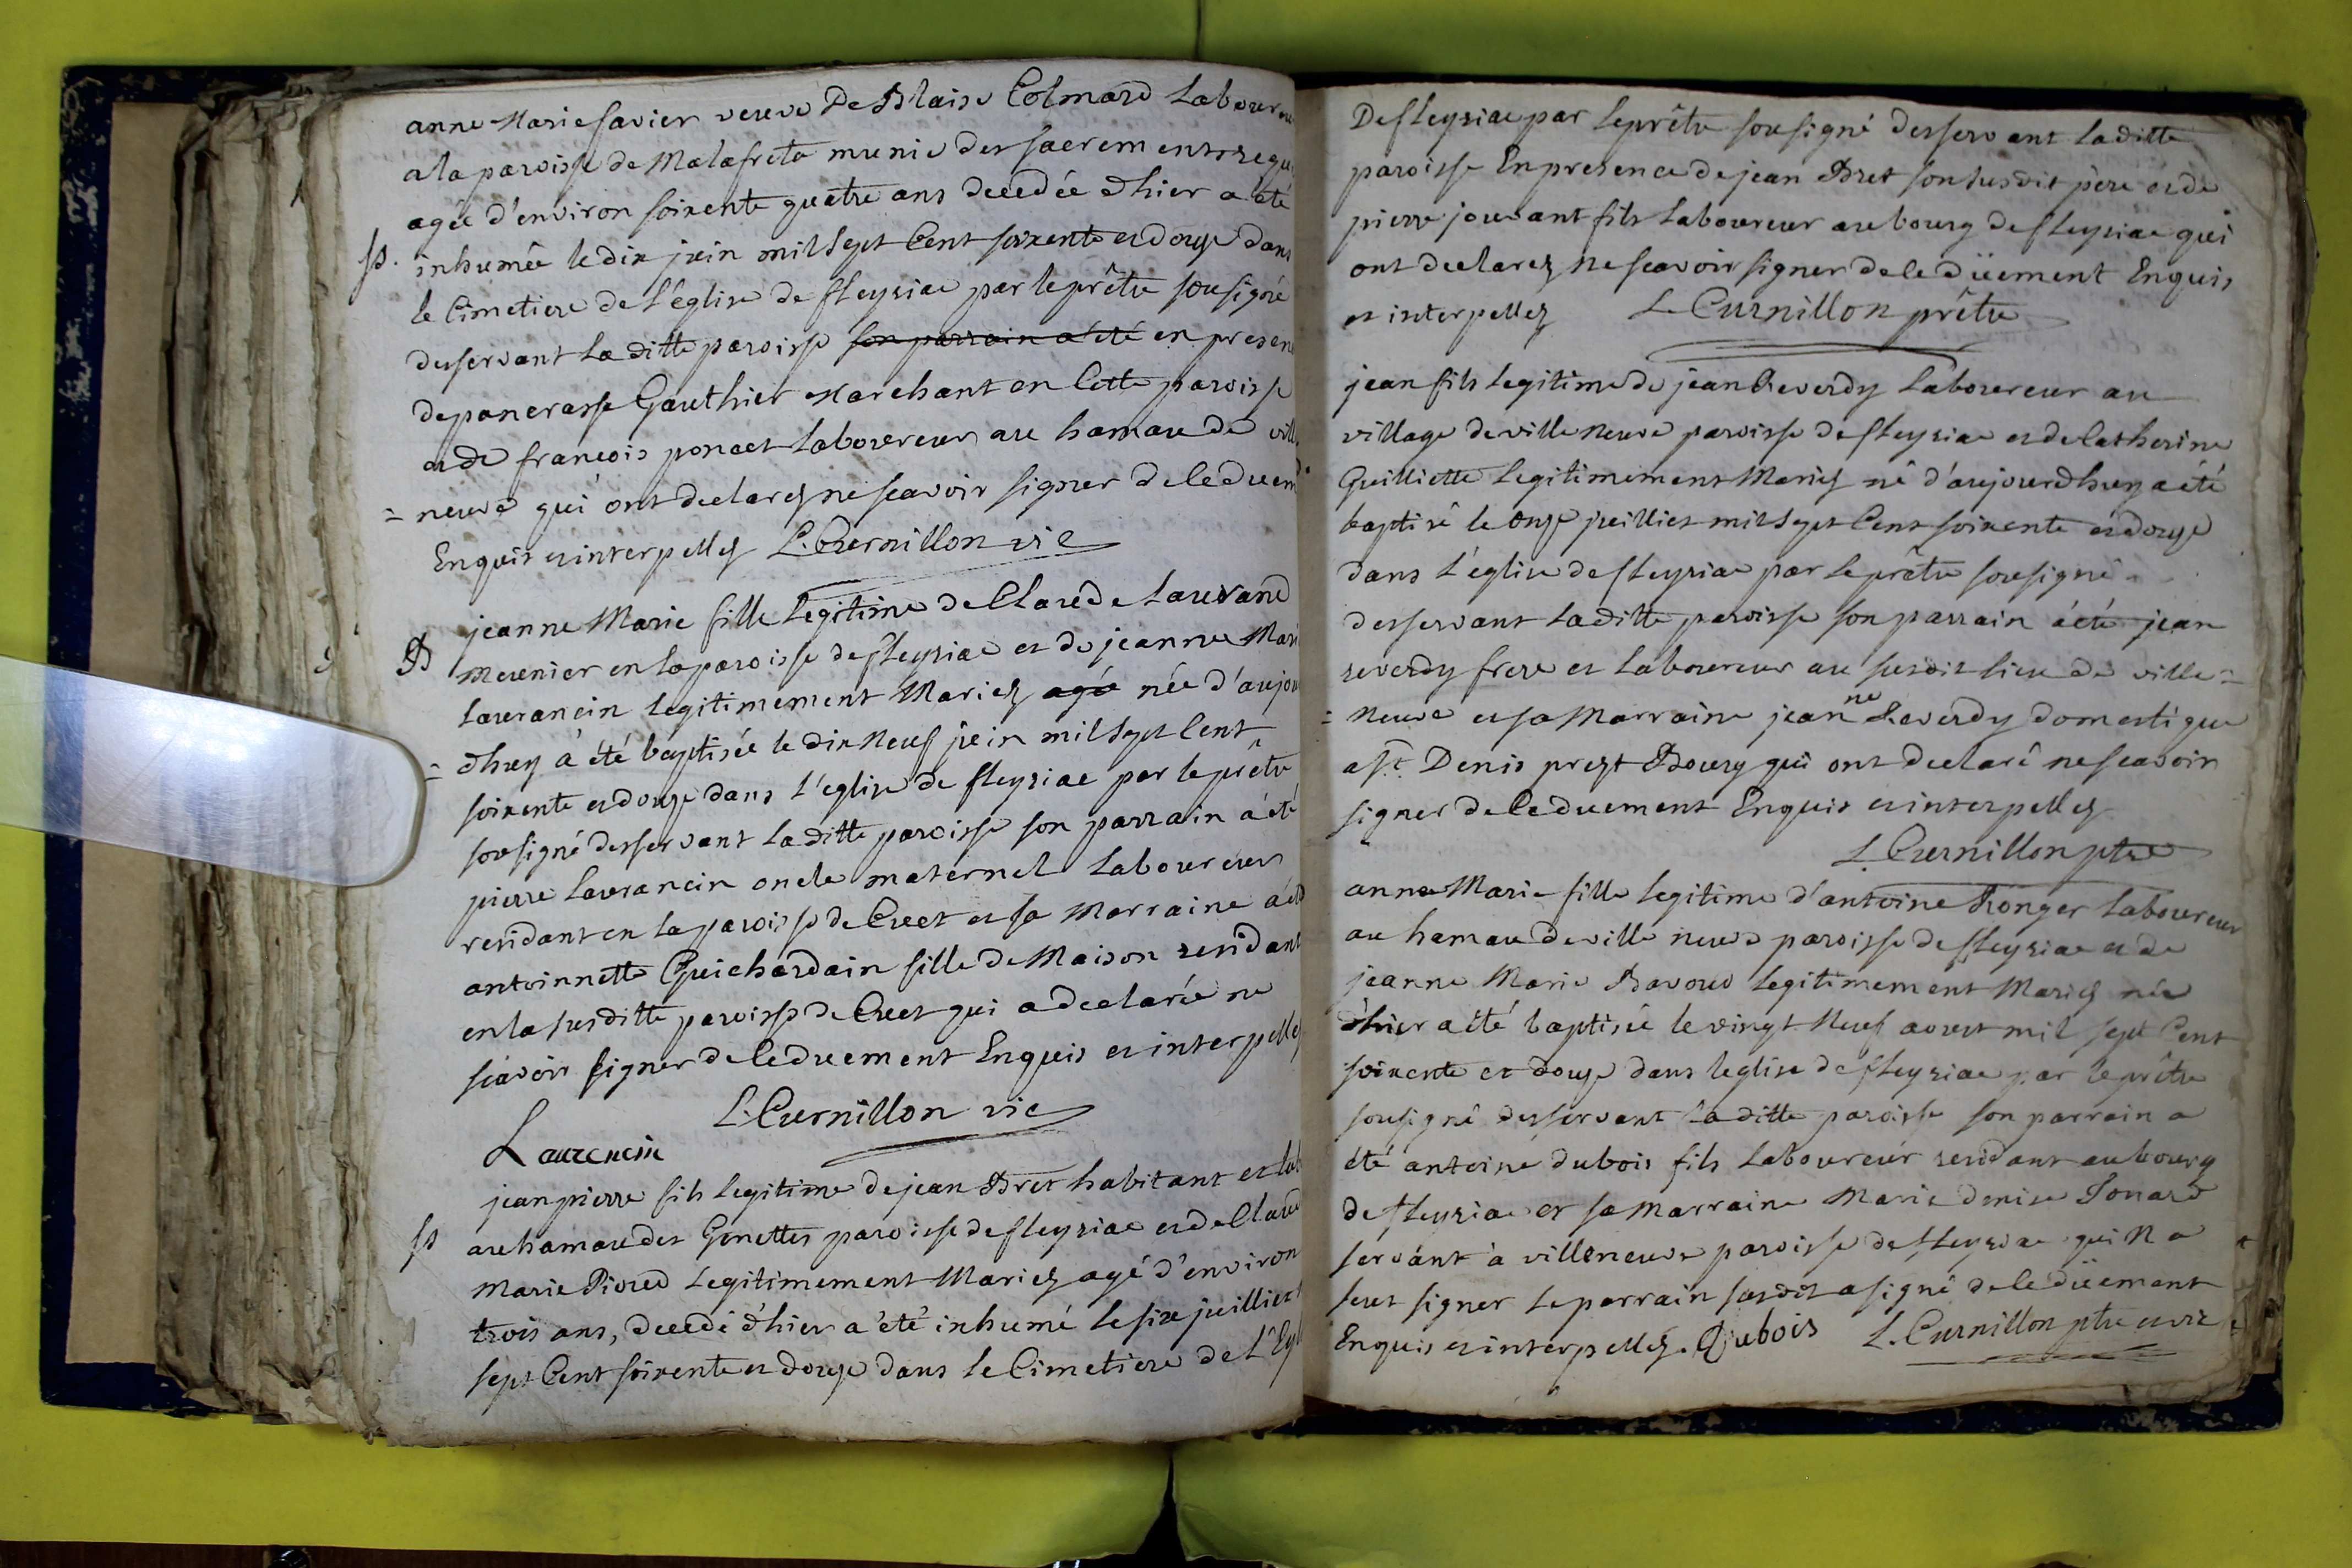 anne Marie favier veuve De Blaise Colmard Laboureu
a la paroisse de Malafreta munie des sacrements requi
agée d'environ soixente quatre ans decedée d'hier a été
S. inhumée le dix juin mil sept Cent soixente et douze dans
le Cimetiere de l'église de fleyriae par le prêtre sousigné
desservant la ditte paroisse son parrain a été en presen
de panerasse Gauthier Marchant en Cette paroisse
et de françois poncet Laboureur au hamau de vill
= neuve qui ont declarez ne sçavoir signer de ce duem
Enquis et interpellez L. Curnillon vic
jeanne Marie fille Legitime de Claude Lauvand
B meunier en la paroisse de fleyriae et de jeanne Mari
laurancin legitimement Mariez agée née d'aujou
= dhuy a été baptisée le dix Neuf juin mil sept Cent
soixente et douze dans l'eglise de fleyriae par le prêtre
sousigné desservant la ditte paroisse son parrain a été
pierre laurancin oncle maternel Laboureur
residant en la paroisse de Cuet et sa Marraine a été
antoinnette Guichardain fille de Maison residant
en la susditte paroisse de Cuet qui a declarée ne
sçavoir signer de ce duement Enquis et interpellez
L. Curnillon vic
Laurencin
jean pierre fils legitime de jean Bret habitant et lab
S au hamau des Genettes paroisse de fleyriae et de Claud
Marie Pioud Legitimement Mariez agé d'environ
trois ans, decedé d'hier a été inhumé le six juilliet
sept Cent soixente et douze dans le Cimetiere de l'Egl
De fleyriae par le prêtre sousigné desservant la ditte
paroisse En presence de jean Bret son susdit père et de
pierre jouvant fils Laboureur au bourg de fleyriae qui
ont declarez ne scavoir signer de ce düement Enquis
et interpellez L Curnillon prêtre
jean fils legitime de jean Reverdy Laboureur au
village de ville neuve paroisse de fleyriae et de Catherine
Guilliette Legitimement Mariez né d'aujourdhuy a été
baptisé le onze juilliet mil sept Cent soixente et douze
dans l'église de fleyriae par le prêtre sousigné
desservant la ditte paroisse son parrain a été jean
reverdy frere et laboureur au susdit lieu de ville =
= Neuve et sa Marraine jeanne Reverdy domestique
a St. Denis prezt Bourg qui ont declaré ne scavoir
signer de ce duement Enquis et interpellez
L. Curnillon ptre
anne Marie fille legitime d'antoine Ronger laboureur
au hamau de ville neuve paroisse de fleyriae et de
jeanne Marie Bavoud legitimement Mariez née
d'hier a été baptisée le vingt Neuf avout mil sept Cent
soixente et douze dans leglise de fleyriae par le prêtre
sousigné desservant la ditte paroisse son parrain a
été antoine dubois fils Laboureur residant au bourg
de fleyriae et sa Marraine Marie denise Sonard
servant à villeneuve paroisse de fleyriae qui N a
seut signer le parrain susdit a signé de ce düement
Enquis et interpellez. Dubois L. Curnillon ptre et vic